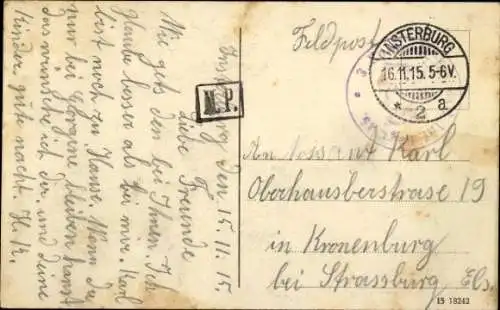 Insterburg den 15.11.15
Liebe Freunde
Wie gets den bei Ihnen. Ich
Glaube besser als bei mir. Karl
bist noch zu Hause. Wenn du
nur bei bleiben hanst
das wünsche ich dir und deine
Kinder, gute nacht. H. K.
M.P.
Feldpost
INSTERBURG
16.11.15. 5-6V.
* 2 a
An Karl
Oberhausberstrasse 19
in Kronenburg
bei Strassburg Els.
15 18242